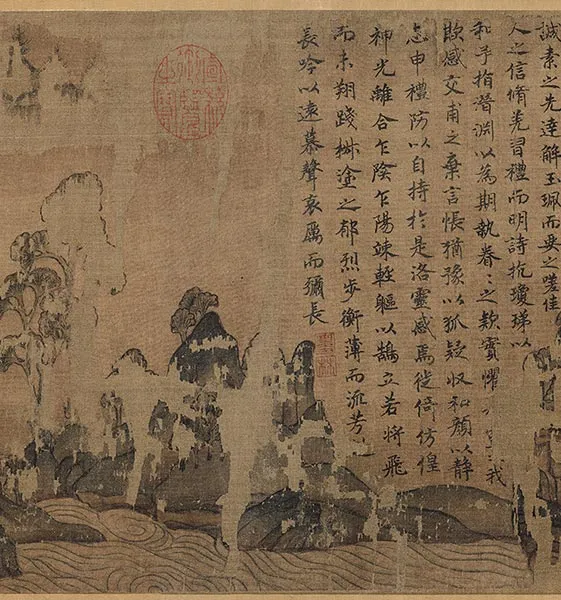 誠素之先達解玉珮而要之嗟佳
人之信脩羌習禮而明詩抗瓊珶以
和予指潛淵以為期執眷之欵實懼我
欺感交甫之棄言悵猶豫以狐疑収和顏以静
志申禮防以自持於是洛靈感焉徙倚仿偟
神光離合乍陰乍陽竦輕軀以鶴立若將飛
而未翔踐椒塗之郁烈步衡薄而流芳
長吟以遠慕聲哀厲而彌長